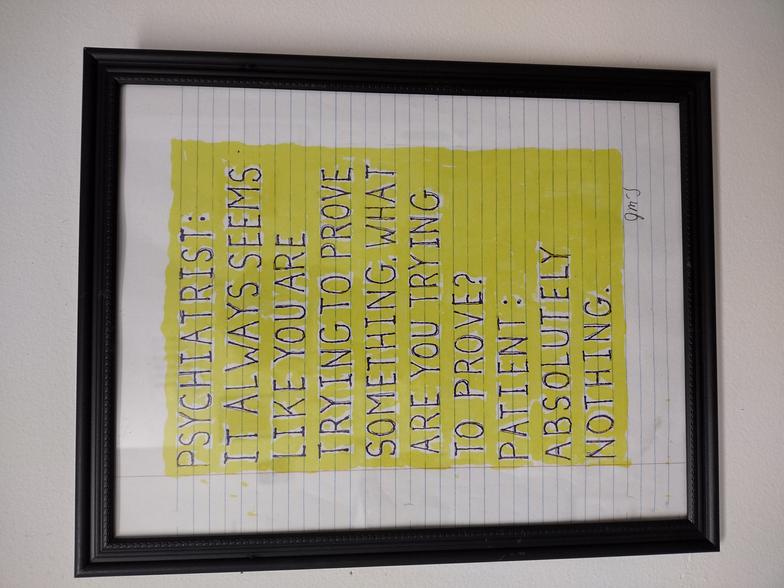 PSYCHIATRIST:
IT ALWAYS SEEMS
LIKE YOU ARE
TRYING TO PROVE
SOMETHING. WHAT
ARE YOU TRYING
TO PROVE?
PATIENT:
ABSOLUTELY
NOTHING.